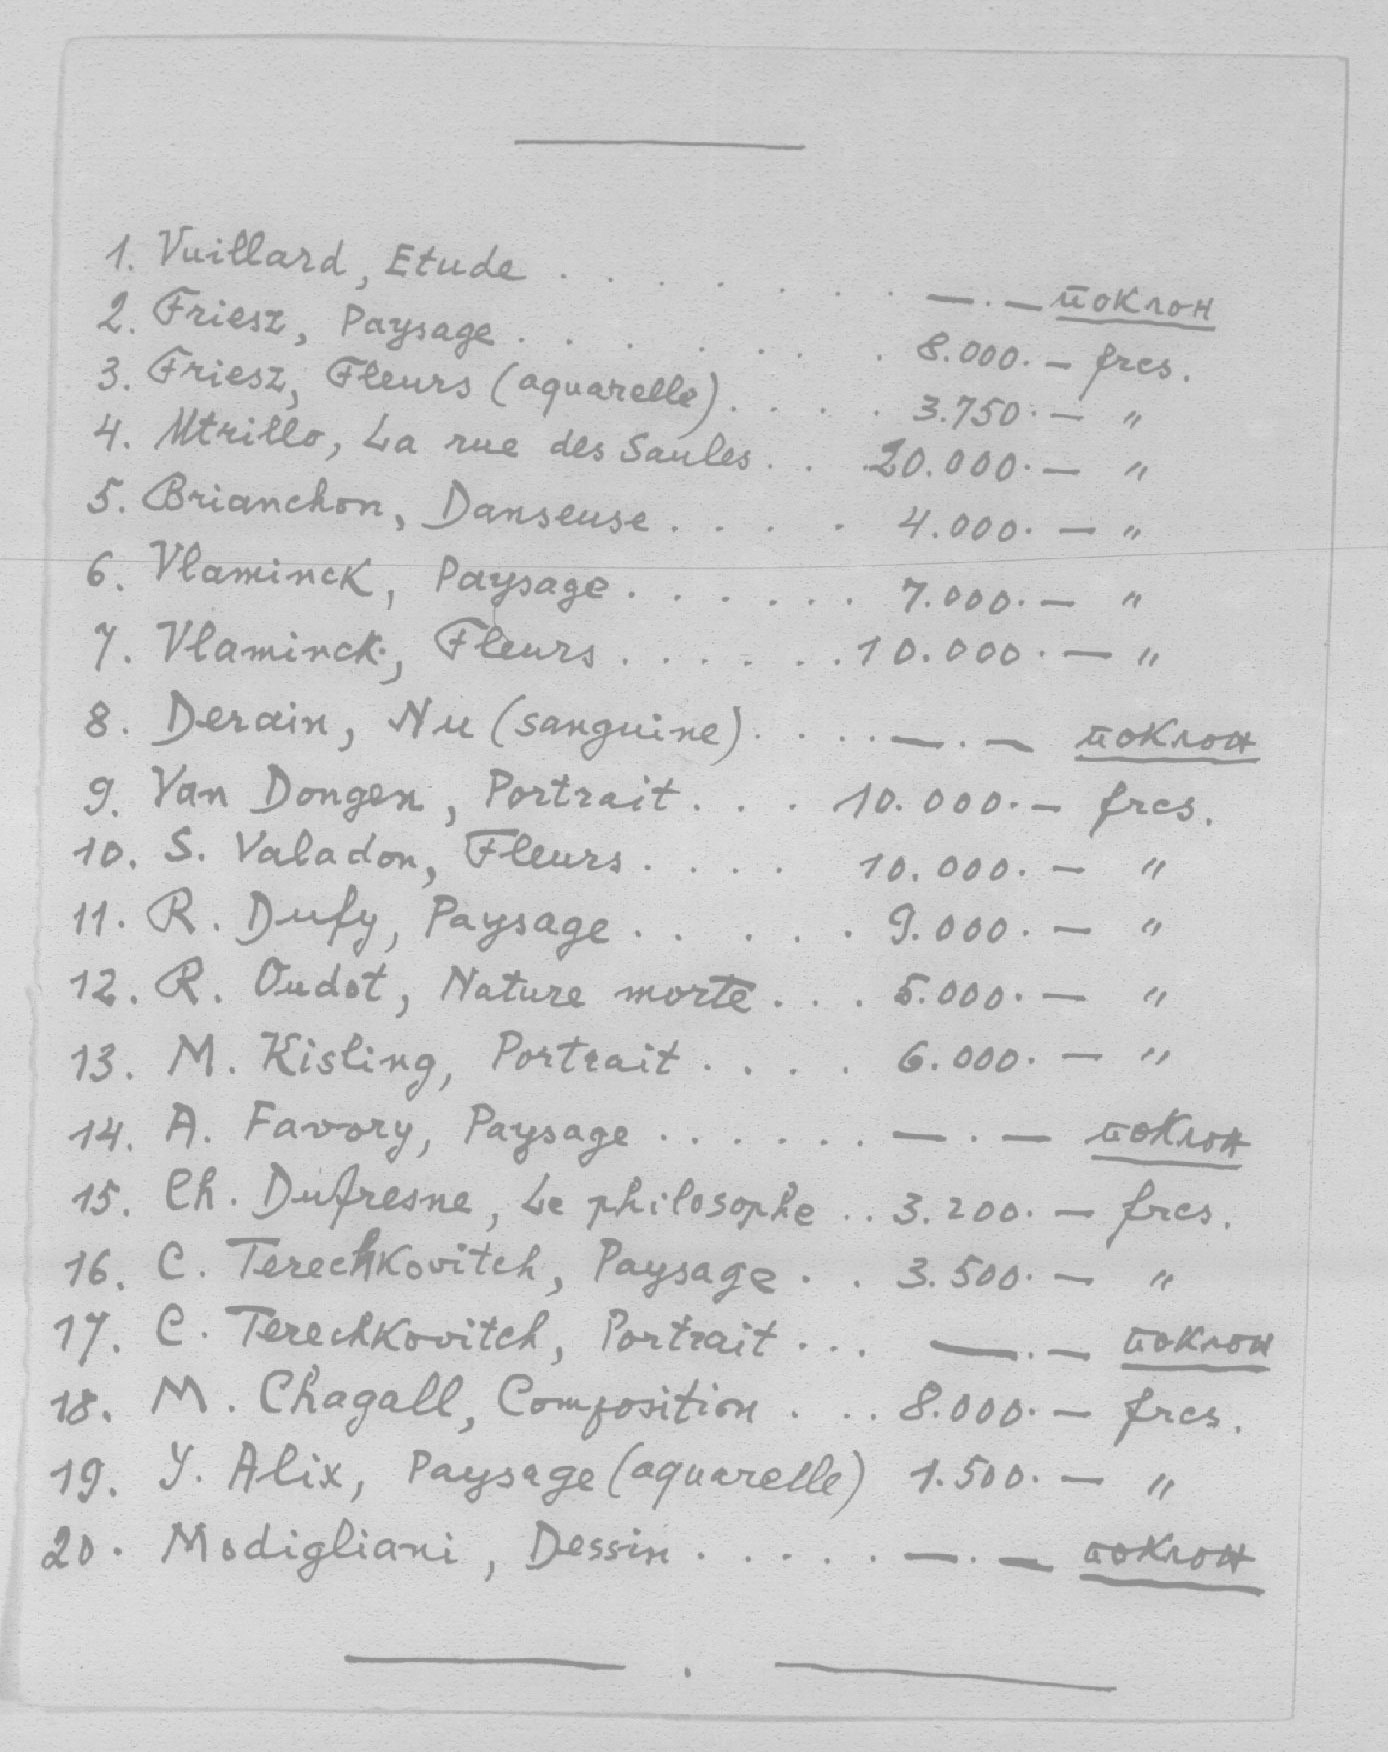 1. Vuillard, Etude . . . . . . . —.— поклон
2. Friesz, Paysage . . . . . . . 8.000.— frcs.
3. Friesz, Fleurs (aquarelle) . . . . 3.750.— "
4. Utrillo, La rue des Saules . . 20.000.— "
5. Brianchon, Danseuse . . . . 4.000.— "
6. Vlaminck, Paysage . . . . . . 7.000.— "
7. Vlaminck, Fleurs . . . . . . 10.000.— "
8. Derain, Nu (sanguine) . . . . —.— поклон
9. Van Dongen, Portrait . . . 10.000.— frcs.
10. S. Valadon, Fleurs . . . . 10.000.— "
11. R. Dufy, Paysage . . . . . 9.000.— "
12. R. Oudot, Nature morte . . . 5.000.— "
13. M. Kisling, Portrait . . . . 6.000.— "
14. A. Favory, Paysage . . . . . . —.— поклон
15. Ch. Dufresne, Le philosophe . . 3.200.— frcs.
16. C. Terechkovitch, Paysage . . 3.500.— "
17. C. Terechkovitch, Portrait . . . —.— поклон
18. M. Chagall, Composition . . . 8.000.— frcs.
19. Y. Alix, Paysage (aquarelle) 1.500.— "
20. Modigliani, Dessin . . . . . —.— поклон